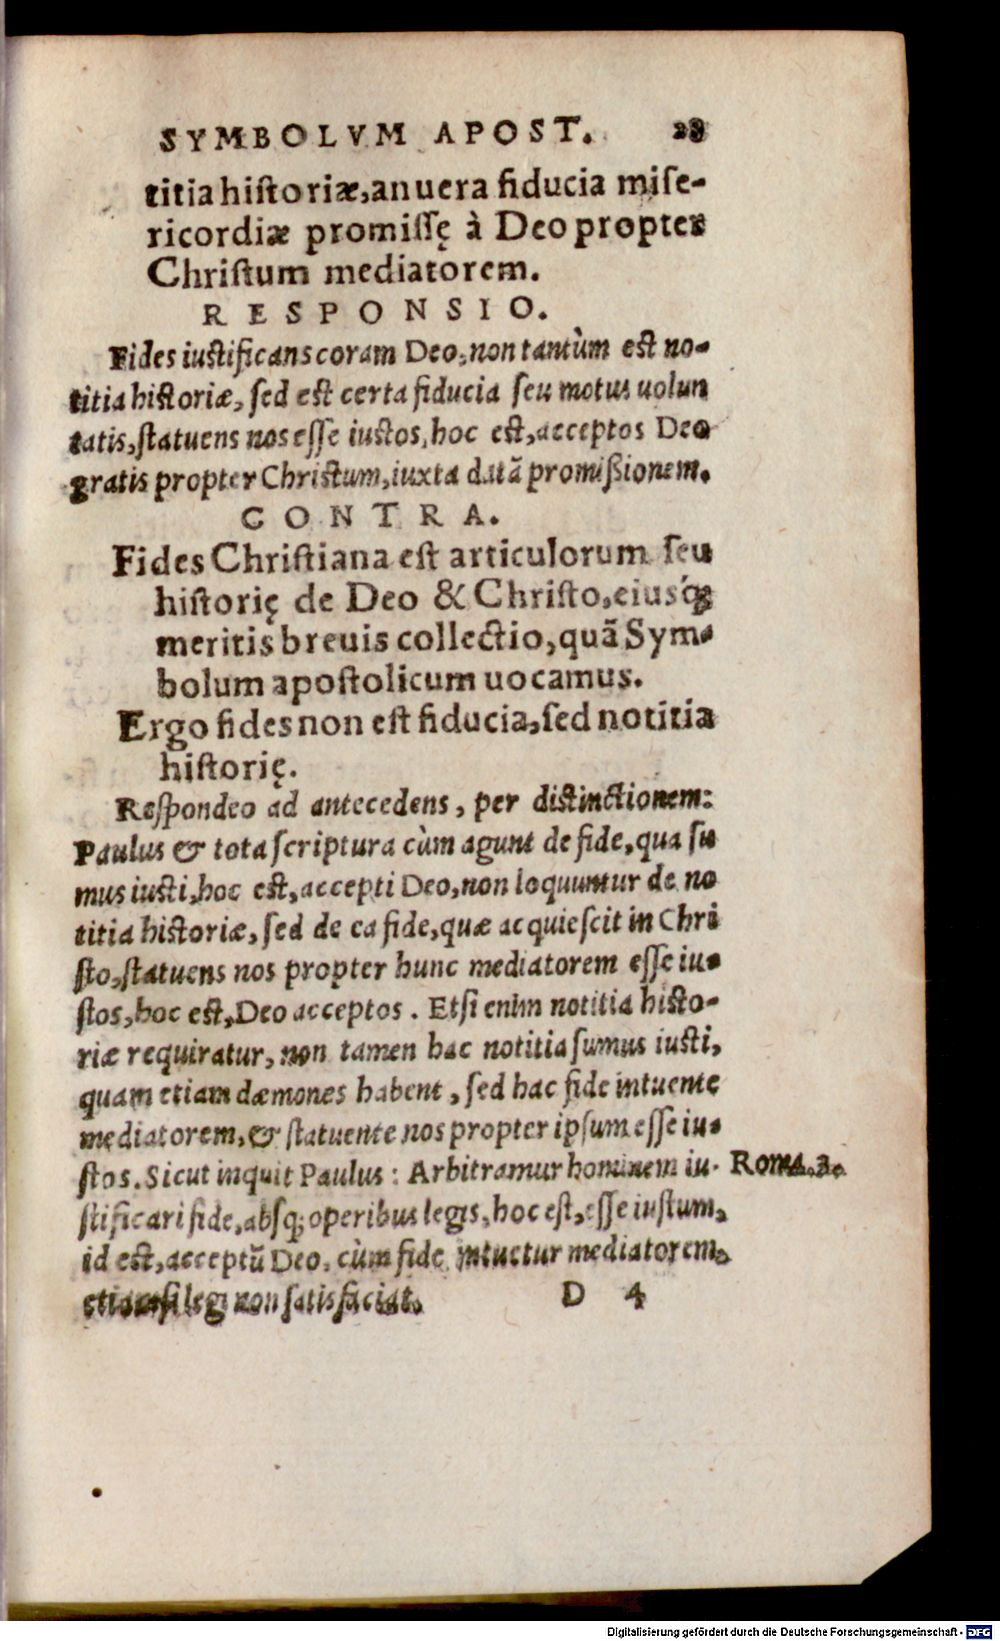 SYMBOLVM APOST. 28
titia historiæ, an uera fiducia mise-
ricordiæ promissę à Deo propter
Christum mediatorem.
RESPONSIO.
Fides iustificans coram Deo, non tantùm est no-
titia historiæ, sed est certa fiducia seu motus uolun
tatis, statuens nos esse iustos, hoc est, acceptos Deo
gratis propter Christum, iuxta datã promißionem.
CONTRA.
Fides Christiana est articulorum seu
historię de Deo & Christo, eiusq́;
meritis breuis collectio, quã Sym-
bolum apostolicum uocamus.
Ergo fides non est fiducia, sed notitia
historię.
Respondeo ad antecedens, per distinctionem:
Paulus & tota scriptura cùm agunt de fide, qua su
mus iusti, hoc est, accepti Deo, non loquuntur de no
titia historiæ, sed de ea fide, quæ acquiescit in Chri
sto, statuens nos propter hunc mediatorem esse iu-
stos, hoc est, Deo acceptos. Etsi enim notitia histo-
riæ requiratur, non tamen hac notitia sumus iusti,
quam etiam dæmones habent, sed hac fide intuente
mediatorem, & statuente nos propter ipsum esse iu-
stos. Sicut inquit Paulus: Arbitramur hominem iu- Roma. 3.
stificari fide, absq; operibus legis, hoc est, esse iustum,
id est, acceptũ Deo, cùm fide intuetur mediatorem,
etiamsi legi non satisfaciat. D 4
Digitalisierung gefördert durch die Deutsche Forschungsgemeinschaft - DFG